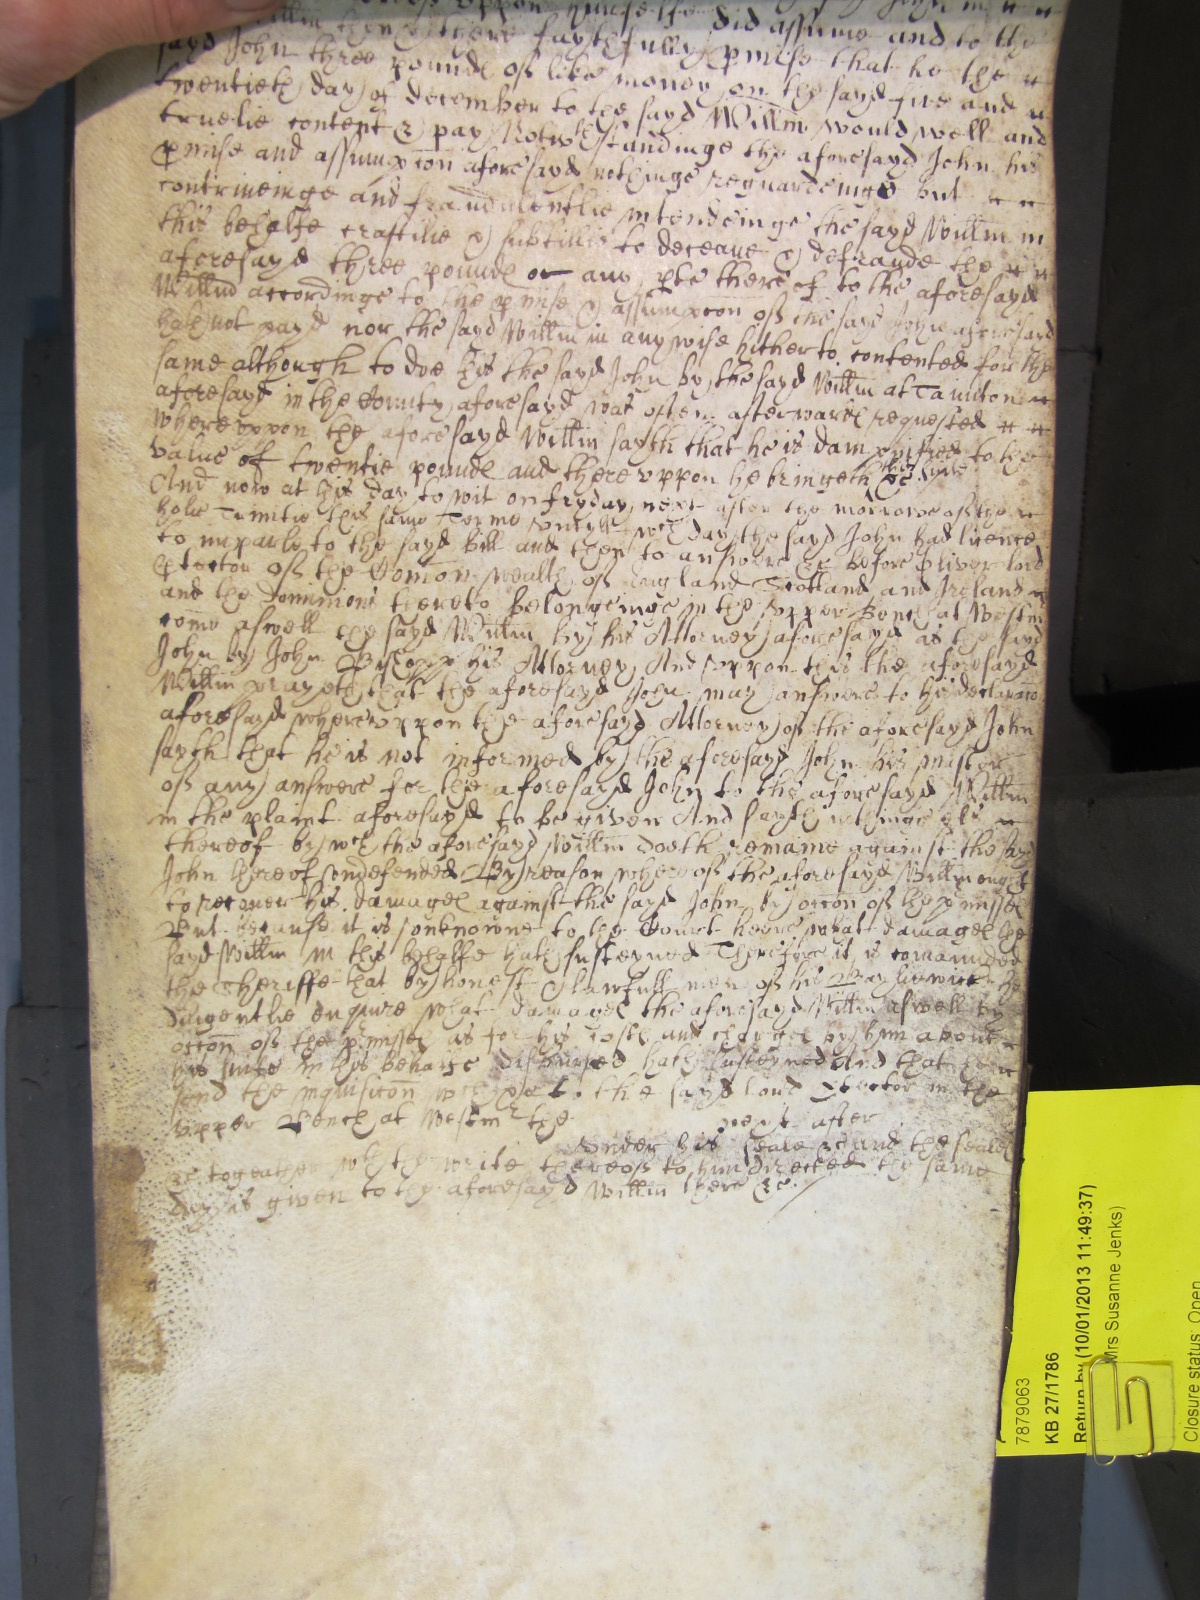 uppon himselfe
Willm then & there faythfully pmise did assume and to the
sayd John three pounds of like money on the sayd five and
twentieth day of December to the sayd Willm would well and
truelie content & pay Notwthstandinge the aforesayd John his
pmise and assumpcon aforesayd nothinge reguardeinge but
contriveinge and fraudulentlie intendeinge the sayd Willm in
this behalfe craftilie & subtillie to deceave & defraude the
aforesayd three pounds or any pte thereof to the aforesayd
Willm accordinge to the pmise & assumpcon of the sayd John aforesayd
hath not payd nor the sayd Willm in any wise hitherto contented for the
same although to doe this the sayd John by the sayd Willm at Taunton
aforesayd in the County aforesayd was often afterwards requested
whereuppon the aforesayd Willm sayth that he is dampnified to the
value of twentie pounds and thereuppon he bringeth this suite
And now at this day to wit on fryday next after the morrowe of the
holie Trinitie this same Terme untill wch day the sayd John had licence
to imparle to the sayd Bill and then to answere &c before Oliver Lord
Ptector of the Comon wealth of England Scotland and Ireland
and the Dominions thereto belongeinge in the upper Bench at Westm
come aswell the sayd Willm by his Attorney aforesayd as the sayd
John by John his Attorney And uppon this the aforesayd
Willm prayeth that the aforesayd John may answere to his declaracon
aforesayd whereuppon the aforesayd Attorney of the aforesayd John
sayth that he is not informed by the aforesayd John his master
of any answere for the aforesayd John to the aforesayd Willm
in the plaint aforesayd to be given And sayth nothinge els
thereof by wch the aforesayd Willm doeth remaine against the sayd
John thereof undefended By reason whereof the aforesayd Willm ought
to recover his damages against the sayd John by occon of the pmisses
But because it is unknowne to the Court heere what damages the
sayd Willm in this behalfe hath susteyned Therefore it is comaunded
the Sheriffe that by honest & lawfull men of his Baylywick he
diligentlie enquire what damages the aforesayd Willm aswell by
occon of the pmisses as for his costs and charges by him about
his suite in this behalfe disbursed hath susteyned And that
send the inquisicon wch to the sayd Lord Ptector in the
upper Bench at Westm the next after
under his seale &c and the seales
&c togeather wth the write thereof to him directed the same
day is given to the aforesayd Willm there &c
7879063
KB 27/1786
Return by (10/01/2013 11:49:37)
Mrs Susanne Jenks)
Closure status: Open